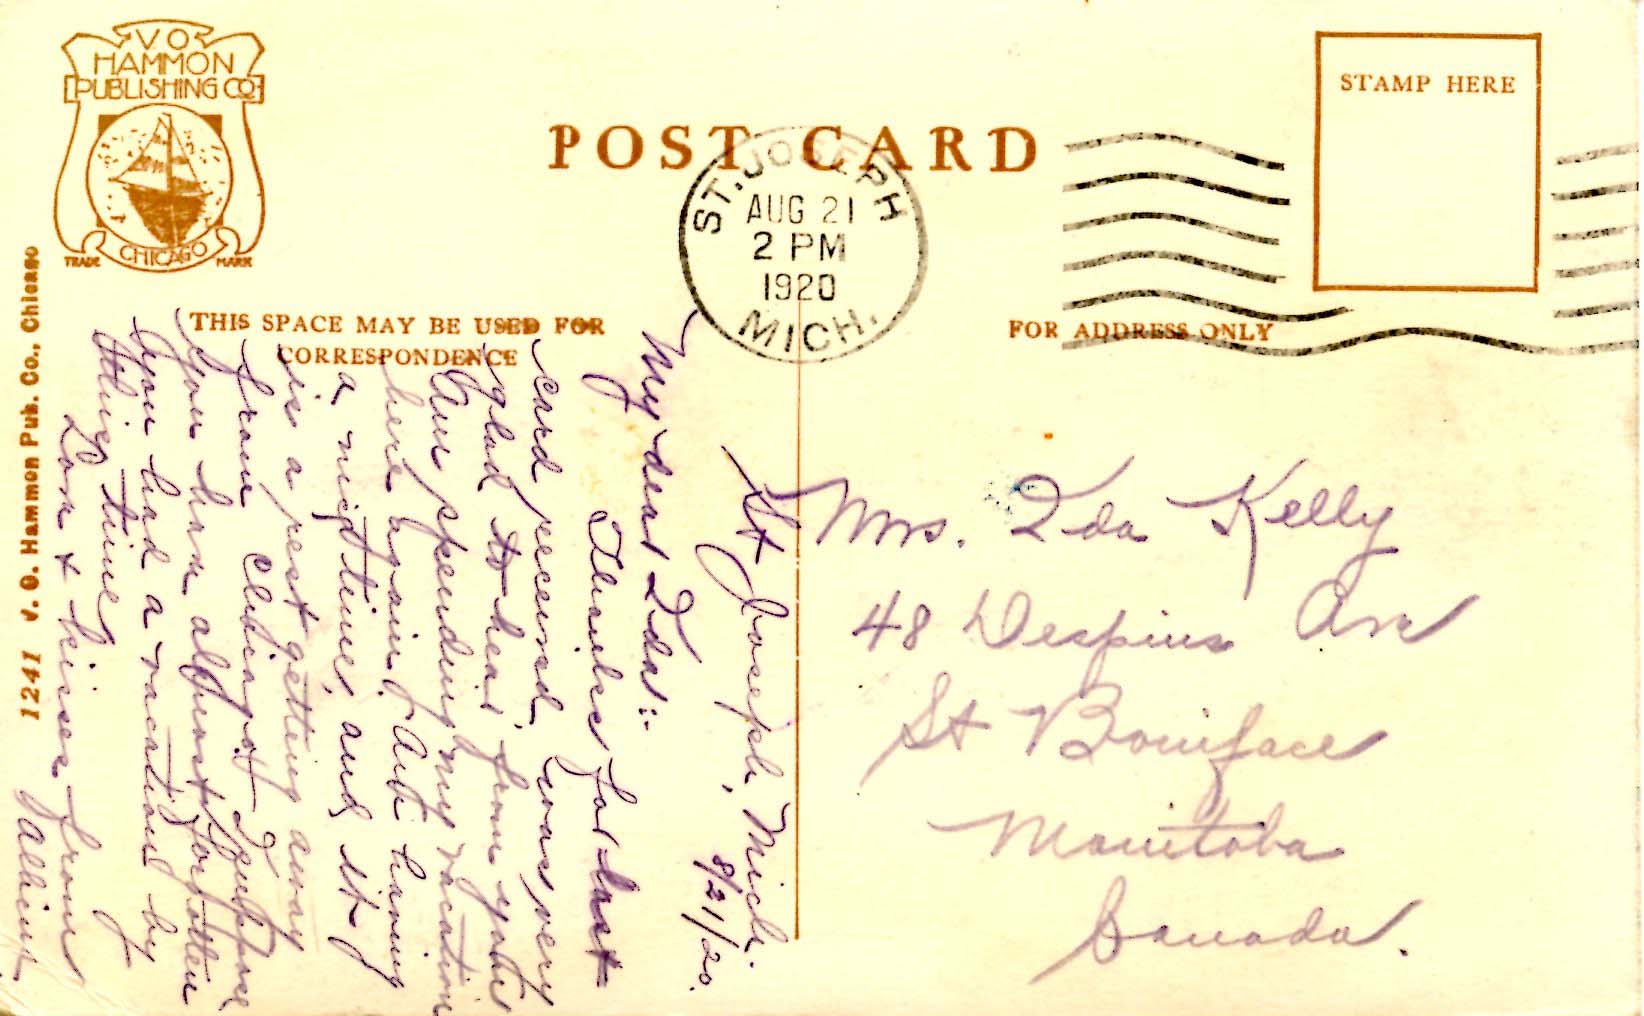 V O
HAMMON
PUBLISHING CO
TRADE
CHICAGO
MARK
POST CARD
STAMP HERE
ST. JOSEPH
AUG 21
2 PM
1920
MICH.
THIS SPACE MAY BE USED FOR
CORRESPONDENCE
FOR ADDRESS ONLY
1241 V. O. Hammon Pub. Co., Chicago
St Joseph, Mich.
8/21/20.
My dear Ida:-
Thanks for last
card received, was very
glad to hear from you
Am spending my vacation
here again. Am having
a nice time, and it
is a rest getting away
from Chicago. I suppose
you have almost forgotten
you had a vacation by
this time
Love & kisses from
Mrs. Ida Kelly
48 Despins Ave
St Boniface
Manitoba
Canada.